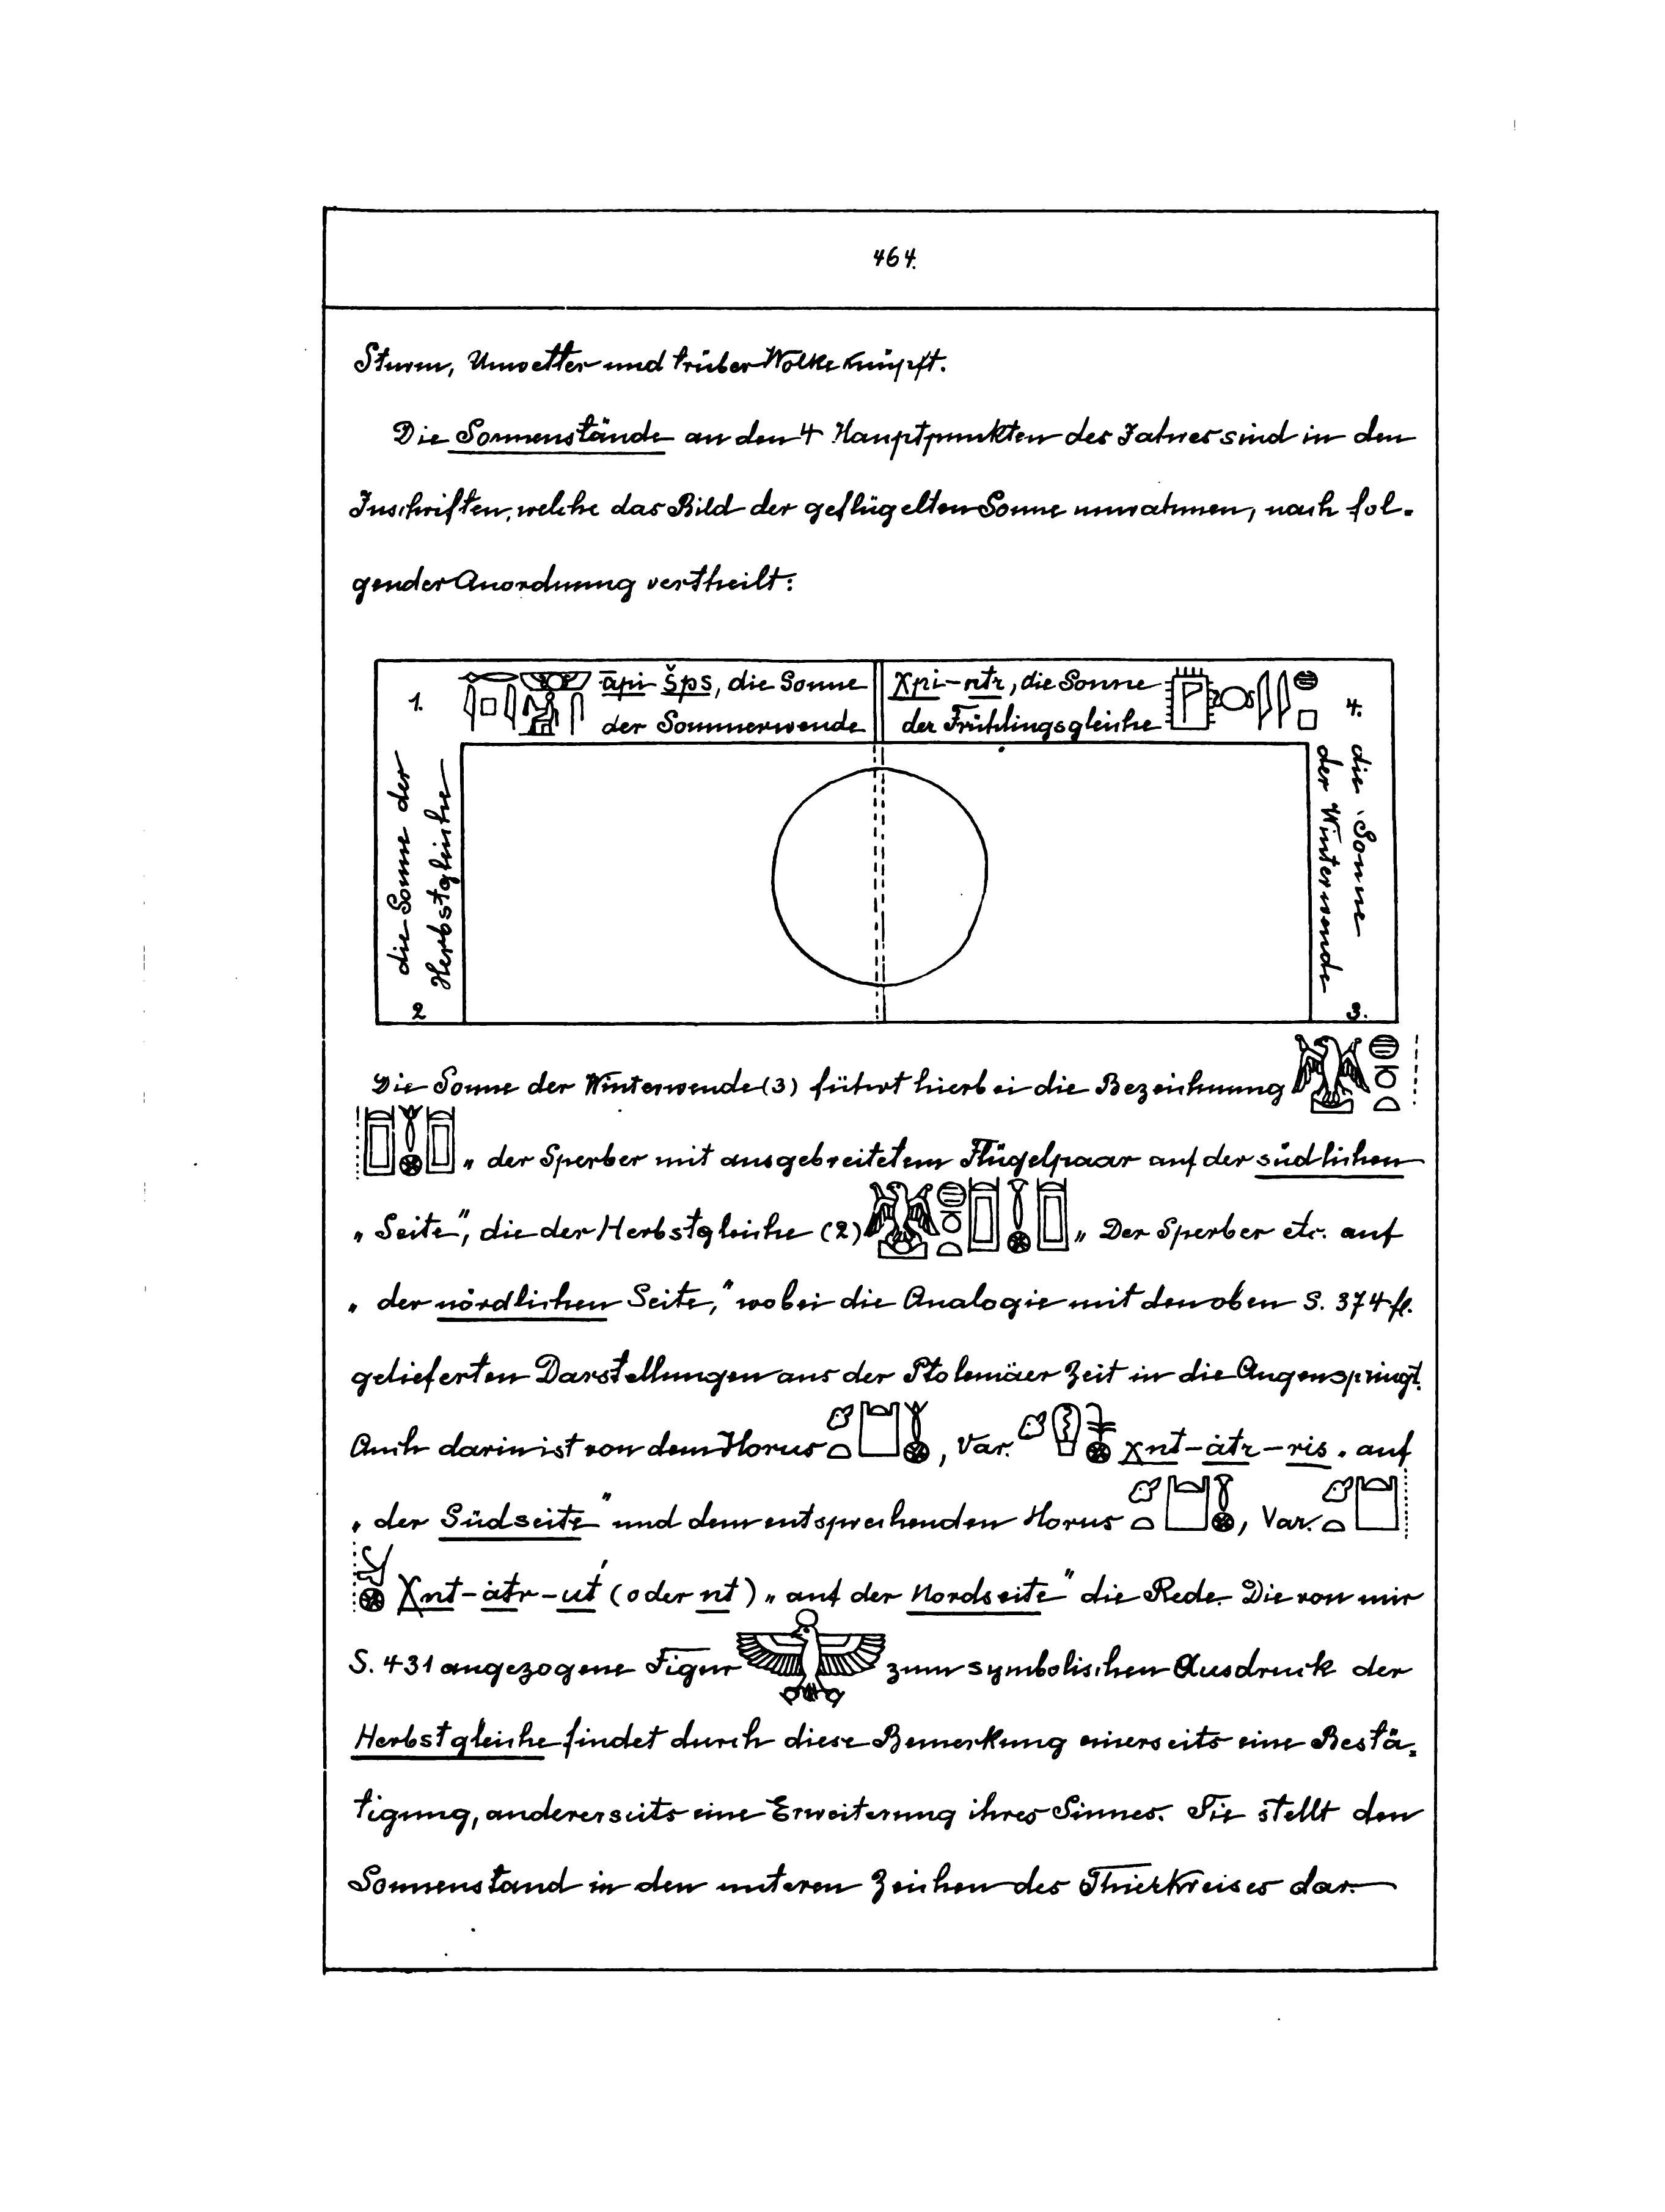 464.
Sturm, Unwetter und trüber Wolke knüpft.
Die Sonnenstände an den 4 Hauptpunkten des Jahres sind in den
Inschriften, welche das Bild der geflügelten Sonne umrahmen, nach fol-
gender Anordnung vertheilt:
1. āpi šps, die Sonne
der Sommerwende
χpi-ntr, die Sonne
der Frühlingsgleiche
4.
die Sonne der
Herbstgleiche
2
die Sonne
der Winterwende
3.
Die Sonne der Winterwende (3) führt hierbei die Bezeichnung
„ der Sperber mit ausgebreitetem Flügelpaar auf der südlichen
„ Seite", die der Herbstgleiche (2) „ Der Sperber etc. auf
„ der nördlichen Seite," wobei die Analogie mit den oben S. 374 fl.
gelieferten Darstellungen aus der Ptolemäer Zeit in die Augen springt.
Auch darin ist von dem Horus , Var. χnt-àtr-ris „ auf
„ der Südseite" und dem entsprechenden Horus , Var.
χnt-àtr-ut́ (oder nt) „ auf der Nordseite" die Rede. Die von mir
S. 431 angezogene Figur zum symbolischen Ausdruck der
Herbstgleiche findet durch diese Bemerkung einerseits eine Bestä-
tigung, andererseits eine Erweiterung ihres Sinnes. Sie stellt den
Sonnenstand in den unteren Zeichen des Thierkreises dar.